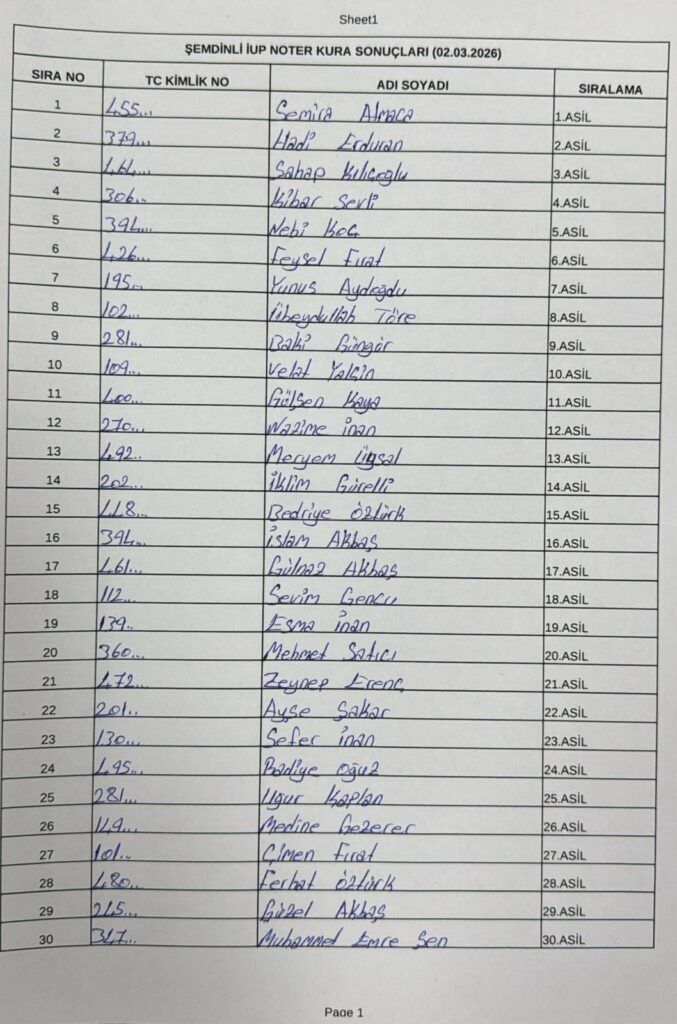 Sheet1
ŞEMDİNLİ İUP NOTER KURA SONUÇLARI (02.03.2026)
SIRA NO TC KİMLİK NO ADI SOYADI SIRALAMA
1 455... Semira Almaca 1.ASİL
2 379... Hadi Erduran 2.ASİL
3 461... Sahap Kılıçoğlu 3.ASİL
4 306.. Kibar Sevli 4.ASİL
5 394... Nebi Koç 5.ASİL
6 426... Feysel Fırat 6.ASİL
7 195.. Yunus Aydoğdu 7.ASİL
8 102... Übeydullah Töre 8.ASİL
9 281... Baki Güngör 9.ASİL
10 109.. Velat Yalçin 10.ASİL
11 400... Gülşen Kaya 11.ASİL
12 270... Nazime İnan 12.ASİL
13 492.. Meryem 13.ASİL
14 202... İklim Gürelli 14.ASİL
15 448... Bedriye Öztürk 15.ASİL
16 394... İslam Akbaş 16.ASİL
17 461... Gülnaz Akbaş 17.ASİL
18 112... Sevim Gencu 18.ASİL
19 139.. Esma İnan 19.ASİL
20 360... Mehmet Satıcı 20.ASİL
21 472... Zeynep Erenç 21.ASİL
22 201.. Ayşe Şakar 22.ASİL
23 130... Sefer İnan 23.ASİL
24 495... Badiye Oğuz 24.ASİL
25 281... Uğur Kaplan 25.ASİL
26 149... Medine Gezerer 26.ASİL
27 101.. Çimen Fırat 27.ASİL
28 480... Ferhat Öztürk 28.ASİL
29 245... Güzel Akbaş 29.ASİL
30 347... Muhammet Emre Şen 30.ASİL
Page 1